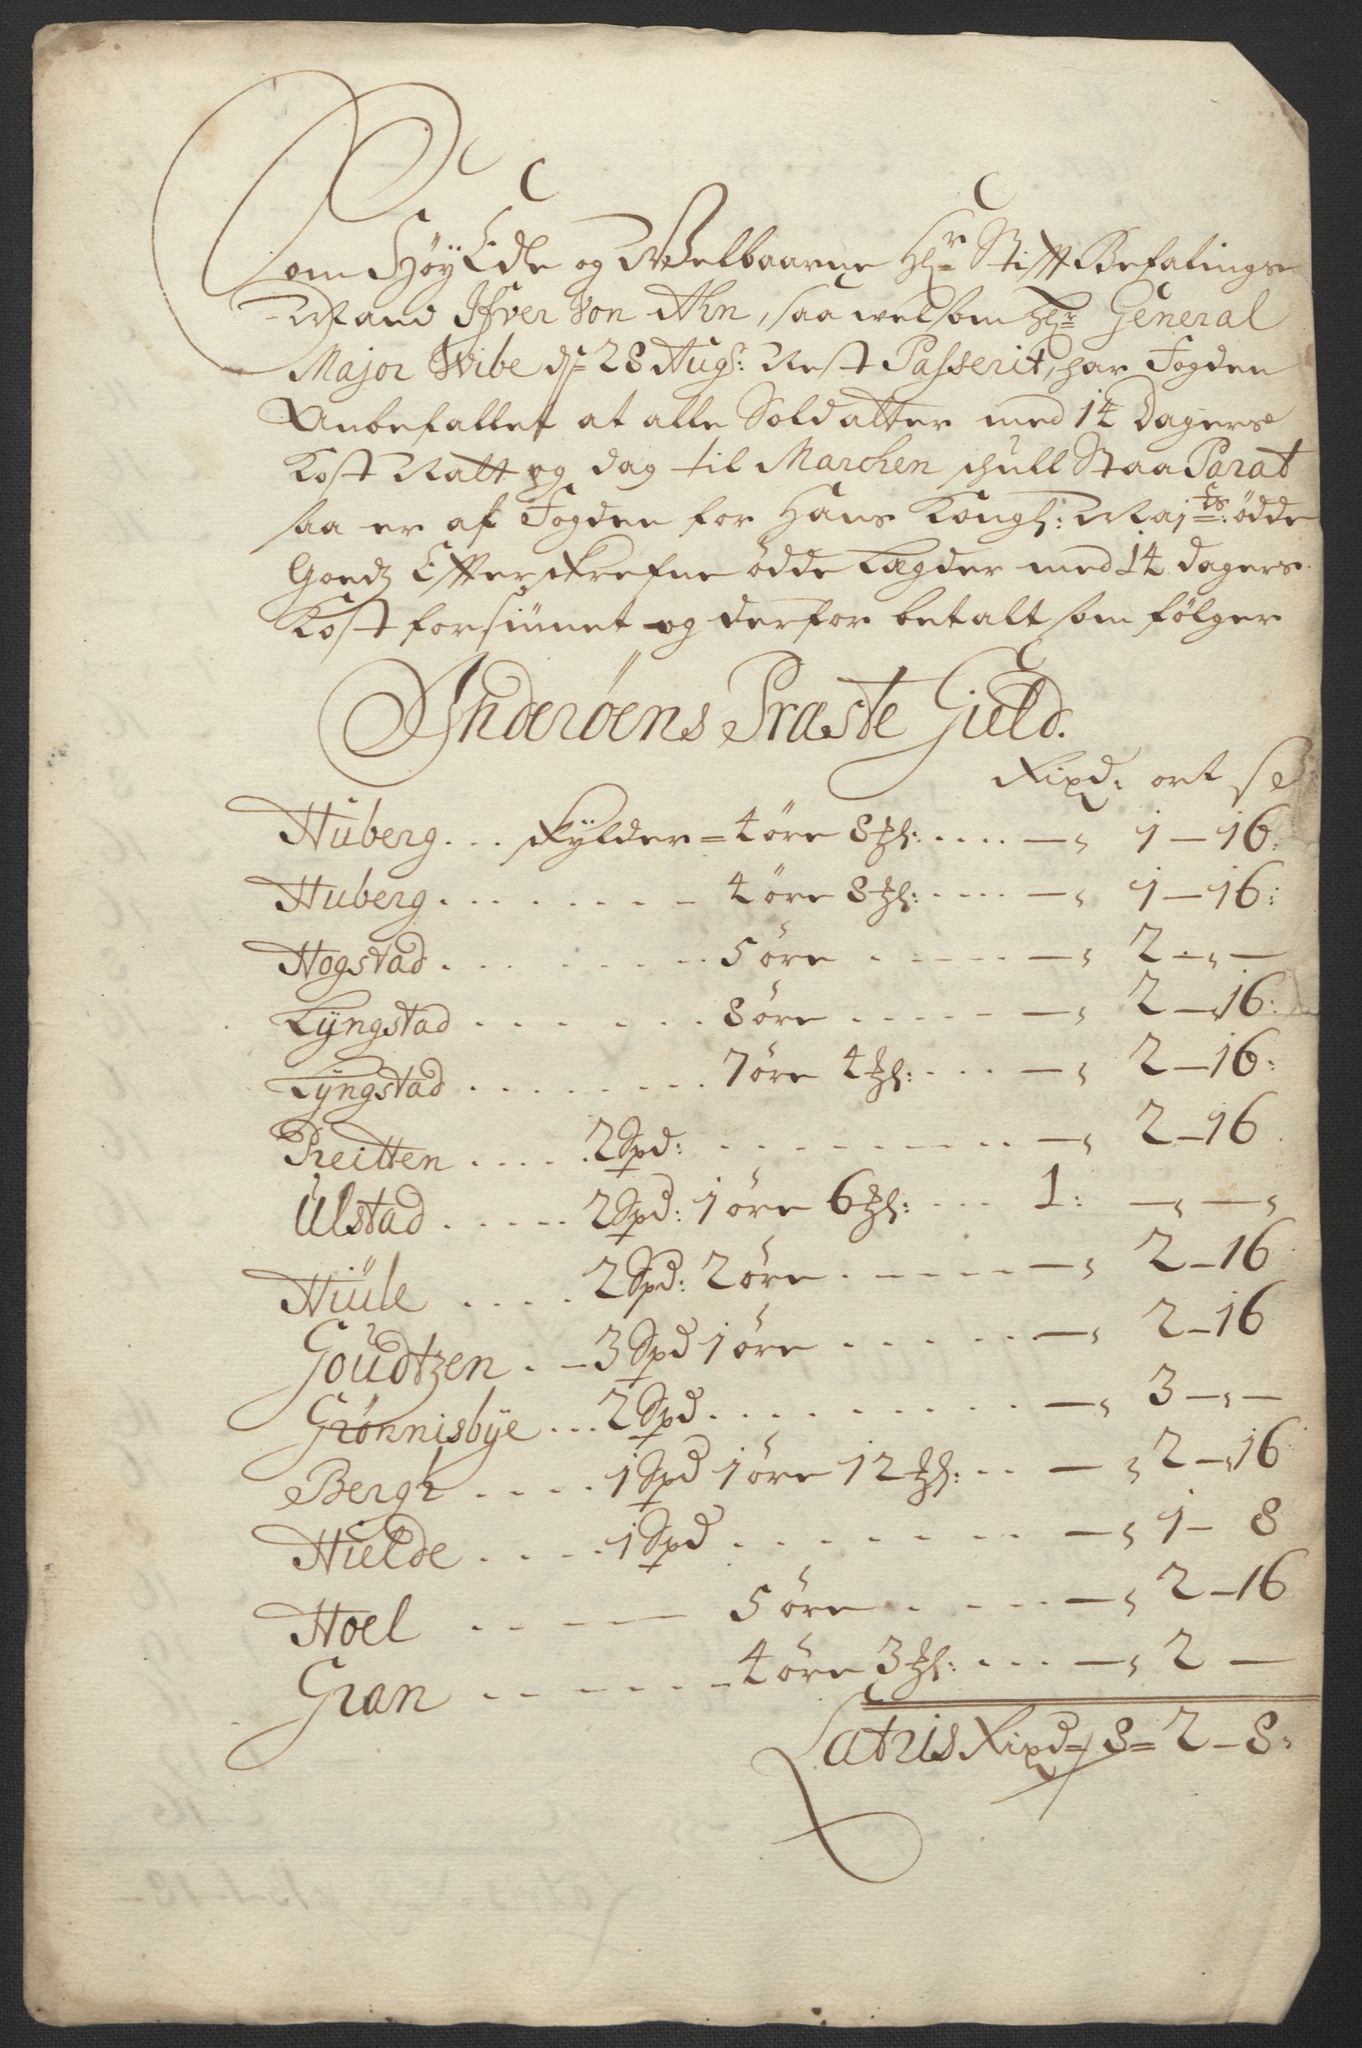 Som HöyEdle og Welbaarne Hr: StifftBefalings
Mand Ifver Von Ahn, saa velsom Hr: General
Major Wibe ds 28 Augs: Nest Passerit, har Fogden
Anbefallet at alle Soldatter med 14 Dagers
Kost Natt og dag til Marchen schull Staa Parat
saa er af Fogden for Hans Kongl: Maj:ts: ödde
Goedz Effterskrefne ödde Lægder med 14 dagers
Kost forsiunet og derfor betalt som fölger
Inderöens Præste Gield.
Rixd: ort s
Huberg... skylder = 4 öre 8 : .... — „ 1 — 16:
Huberg........ 4 öre 8 : .... — „ 1 — 16:
Hogstad........ 5 öre ..... — „ 2 — „ —
Lyngstad....... 8 öre ..... — „ 2 — 16:
Lyngstad........ 7 öre 4 : ... — „ 2 — 16:
Reitten..... 2 Spd: ......... — „ 2 — 16
Ulstad..... 2 Spd: 1 öre 6 : ... 1: — „ — „
Hiule .... 2 Spd: 2 öre ..... — „ 2 — 16
Goudtzen . — 3 Spd 1 öre ..... — „ 2 — 16
Grönnisbye... 2 Spd ......... — „ 3 — „ —
Bergh ..... 1 Spd 1 öre 12 : .. — „ 2 — 16
Hielde..... 1 Spd ....... — „ 1 — 8
Hoel ... — — 5 öre ..... — „ 2 — 16
Gran ....... 4 öre 3 : ... — „ 2 —
Latris Rixd = 8 = 2 — 8: